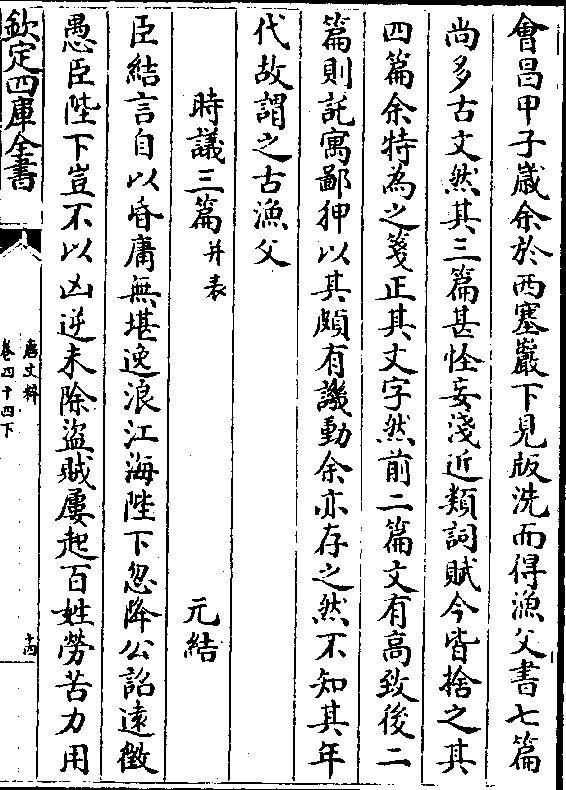 會昌甲子嵗余於西塞巖下見版洗而得漁父書七篇
尚多古文然其三篇甚怪妄淺近類詞賦今皆捨之其
四篇余特為之箋正其文字然前二篇文有髙致後二
篇則託寓鄙狎以其頗有譏動余亦存之然不知其年
代故謂之古漁父
時議三篇并表 元結
臣結言自以昏庸無堪逸浪江海陛下忽降公詔逺徴
愚臣陛下豈不以凶逆未除盜賊屢起百姓勞苦力用
欽定四庫全書
唐文粹
卷四十四下
十四